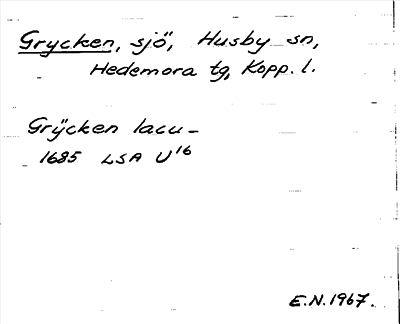 Grycken, sjö, Husby sn,
Hedemora tg, Kopp. l.
Grÿcken lacu-
1685 LSA U16
E.N. 1967.